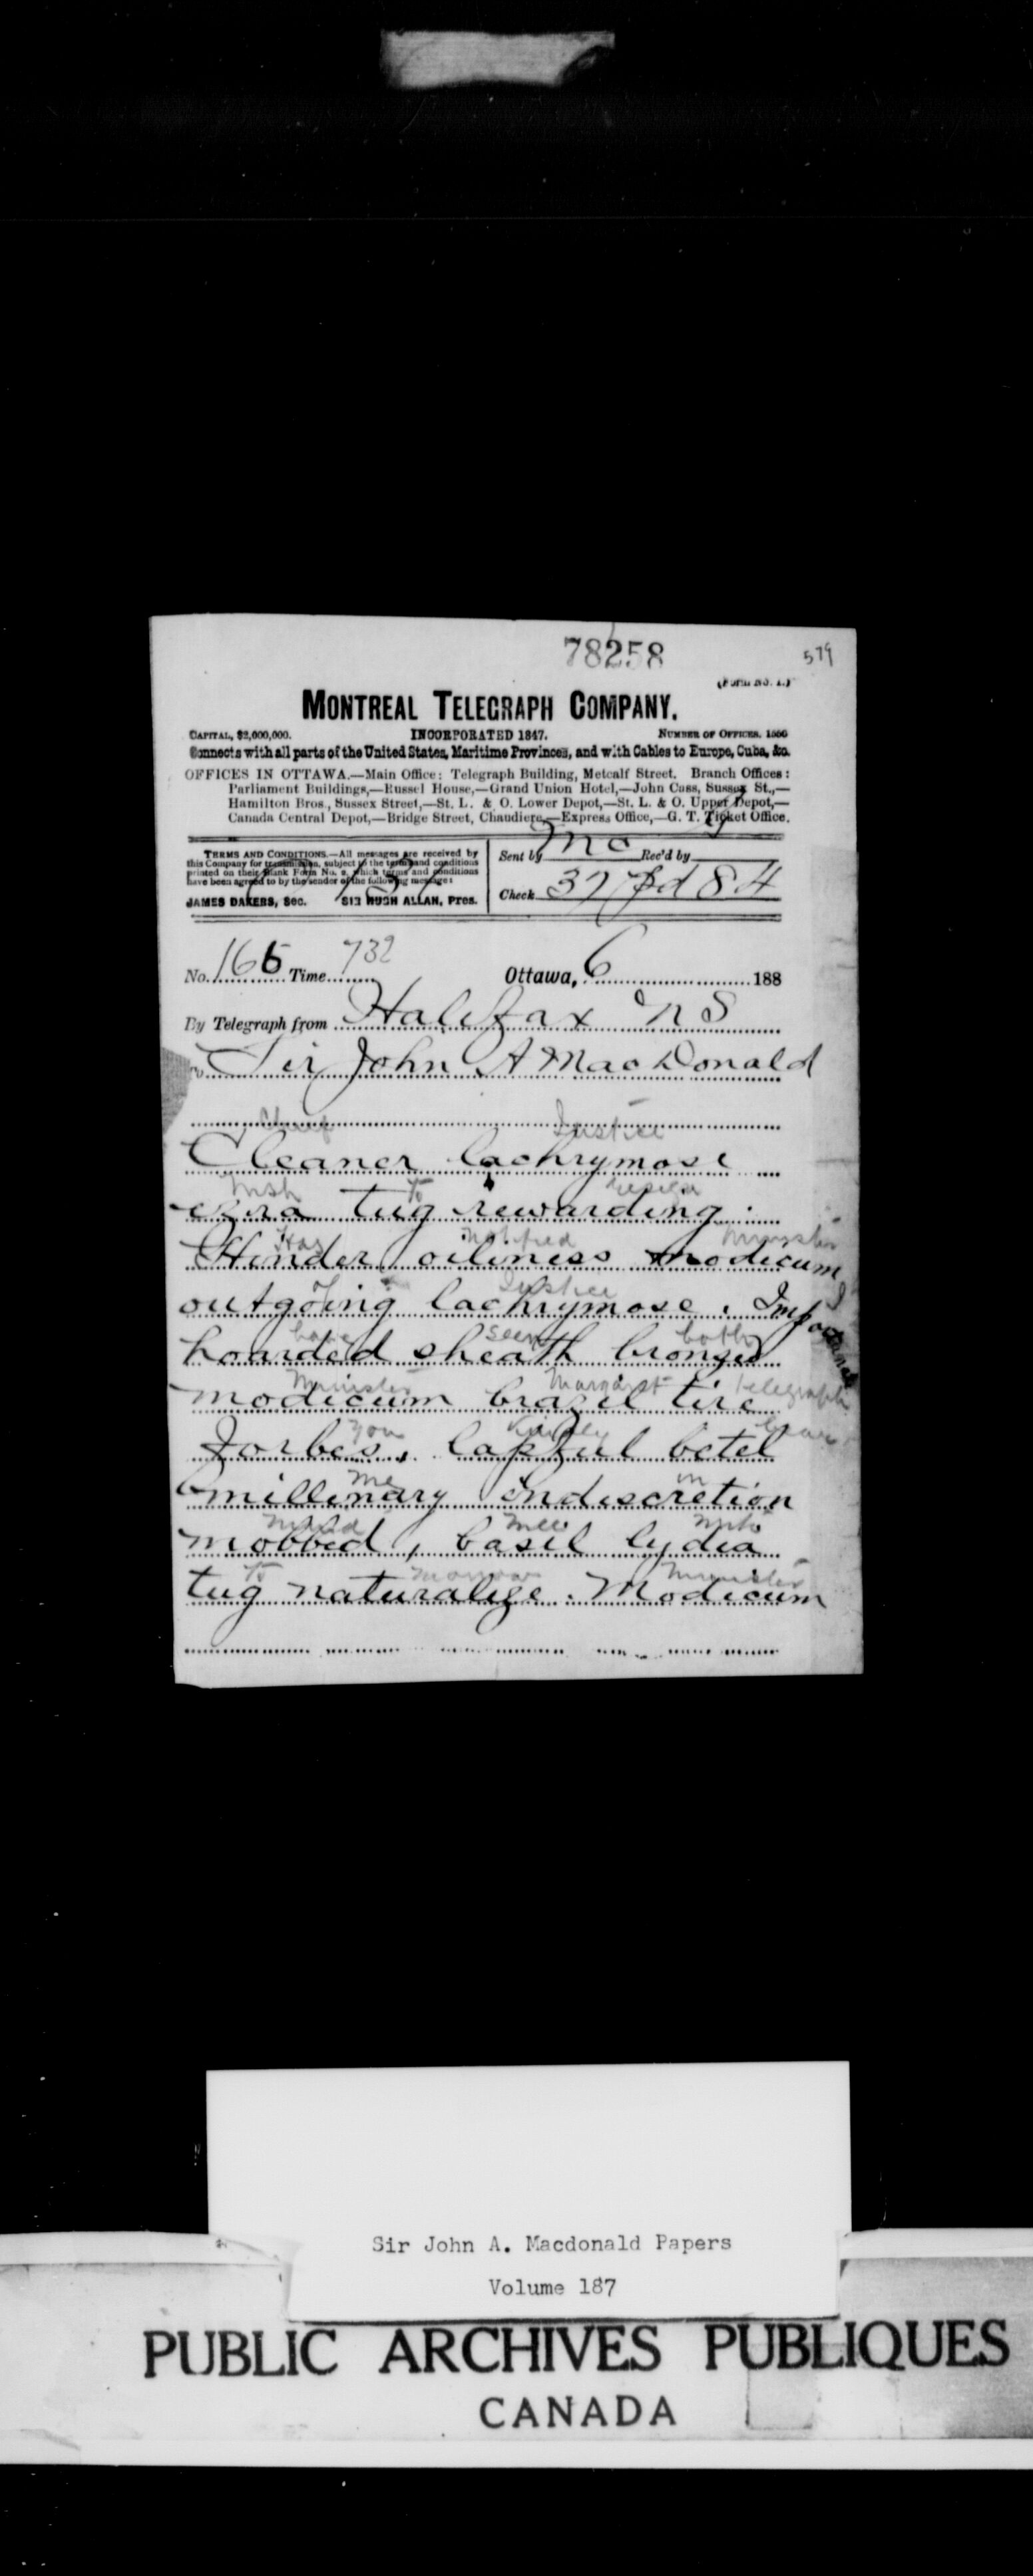 78258
579
(Form No. 1.)
MONTREAL TELEGRAPH COMPANY.
CAPITAL, $2,000,000. INCORPORATED 1847. NUMBER OF OFFICES, 1500
Connects with all parts of the United States, Maritime Provinces, and with Cables to Europe, Cuba, &c.
OFFICES IN OTTAWA.—Main Office: Telegraph Building, Metcalf Street. Branch Offices:
Parliament Buildings,—Russel House,—Grand Union Hotel,—John Cass, Sussex St.,—
Hamilton Bros., Sussex Street,—St. L. & O. Lower Depot,—St. L. & O. Upper Depot,—
Canada Central Depot,—Bridge Street, Chaudiere,—Express Office,—G. T. Ticket Office.
TERMS AND CONDITIONS.—All messages are received by
this Company for transmission, subject to the terms and conditions
printed on their Blank Form No. 2, which terms and conditions
have been agreed to by the sender of the following message:
JAMES DAKERS, Sec. SIR HUGH ALLAN, Pres.
Sent by Mc Rec'd by
Check 37 Pd 84
No. 165 Time 732 Ottawa, 6 188
By Telegraph from Halifax NS
To Sir John A MacDonald
Chief Justice
Cleaner lachrymose
Wish To
ezra tug rewarding.
Has notified Minister
Hinder oiliness modicum
of Justice I
outgoing lachrymose. Importance
have seen both
hoarded sheath bronzed
Minister Margaret telegraph
modicum brazil tire
You Kindly
Forbes, lapful betel
me in
millinary indiscretion
mind
mobbed, basil lydia
To morrow Minister
tug naturalize. Modicum
Sir John A. Macdonald Papers
Volume 187
PUBLIC ARCHIVES PUBLIQUES
CANADA